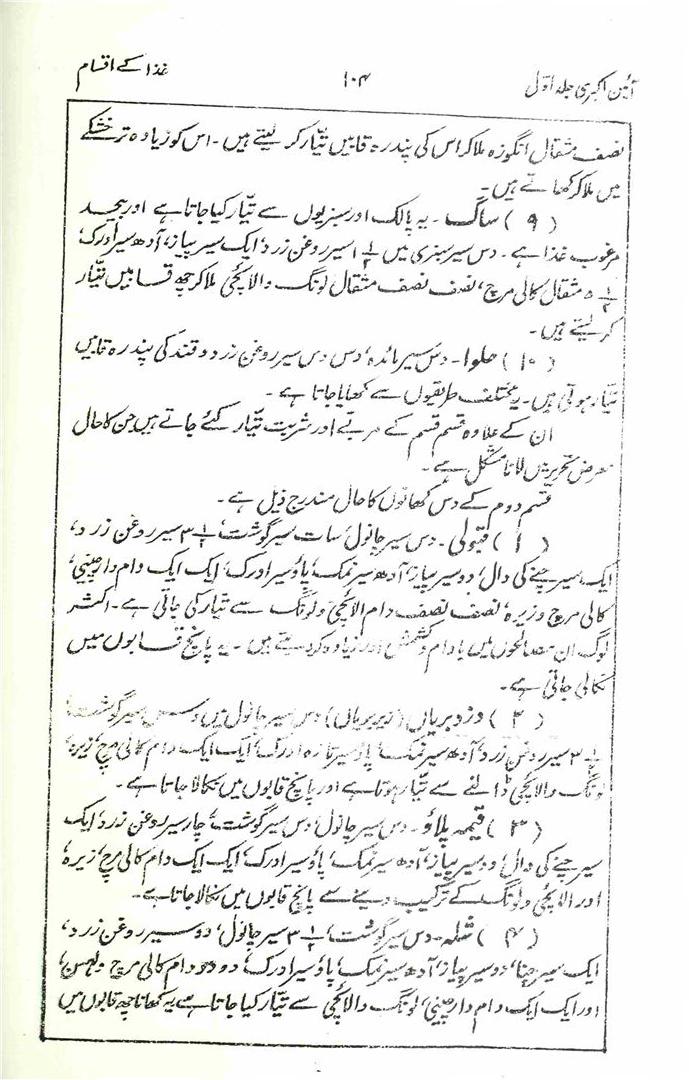 آئین اکبری جلد اوّل ۱۰۴ غذا کے اقسام
نصف مثقال انگوزہ ملا کر اس کی پندرہ قابیں تیّار کر لیتے ہیں۔ اس کو زیادہ تر خشکے
میں ملا کر کھاتے ہیں۔
(۹) ساگ۔ یہ پالک اور سبزیوں سے تیّار کیا جاتا ہے اور بیحد
مرغوب غذا ہے۔ دس سیر سبزی میں ۱/۲ ۱ سیر روغن زرد، ایک سیر پیاز، آدھ سیر ادرک،
۱/۲ ۵ مثقال کالی مرچ، نصف نصف مثقال لونگ و الائچی ملا کر چھ قابیں تیّار
کر لیتے ہیں۔
(۱۰) حلوا۔ دس سیر مائدہ، دس دس سیر روغن زرد و قند کی پندرہ قابیں
تیّار ہوتی ہیں۔ یہ مختلف طریقوں سے کھایا جاتا ہے۔
ان کے علاوہ قسم قسم کے مربّے اور شربت تیّار کئے جاتے ہیں جن کا حال
معرض تحریر میں لانا مشکل ہے۔
قسم دوم کے دس کھانوں کا حال مندرج ذیل ہے۔
(۱) قبولی۔ دس سیر چانول، سات سیر گوشت، ۱/۲ ۳ سیر روغن زرد،
ایک سیر چنے کی دال، دو سیر پیاز، آدھ سیر نمک، پاؤ سیر ادرک، ایک ایک دام دارچینی،
کالی مرچ و زیرہ، نصف نصف دام الائچی و لونگ سے تیّار کی جاتی ہے۔ اکثر
لوگ ان مصالحوں میں بادام و کشمش اور زیادہ کر دیتے ہیں۔ یہ پانچ قابوں میں
نکالی جاتی ہے۔
(۲) دزد بریاں (زیر بریاں) دس سیر چانول میں دس سیر گوشت،
۱/۲ ۳ سیر روغن زرد، آدھ سیر نمک، پاؤ سیر تازہ ادرک، ایک ایک دام کالی مرچ، زیرہ،
لونگ و الائچی ڈالنے سے تیّار ہوتا ہے اور پانچ قابوں میں نکالا جاتا ہے۔
(۳) قیمہ پلاؤ۔ دس سیر چانول، دس سیر گوشت، چار سیر روغن زرد، ایک
سیر چنے کی دال، دو سیر پیاز، آدھ سیر نمک، پاؤ سیر ادرک، ایک ایک دام کالی مرچ، زیرہ،
اور الائچی و لونگ کے ترکیب دینے سے پانچ قابوں میں نکالا جاتا ہے۔
(۴) شلہ۔ دس سیر گوشت، ۱/۲ ۳ سیر چانول، دو سیر روغن زرد،
ایک سیر چنا، دو سیر پیاز، آدھ سیر نمک، پاؤ سیر ادرک، دو دو دام کالی مرچ و لہسن،
اور ایک ایک دام دارچینی، لونگ و الائچی سے تیّار کیا جاتا ہے یہ کھانا چھ قابوں میں